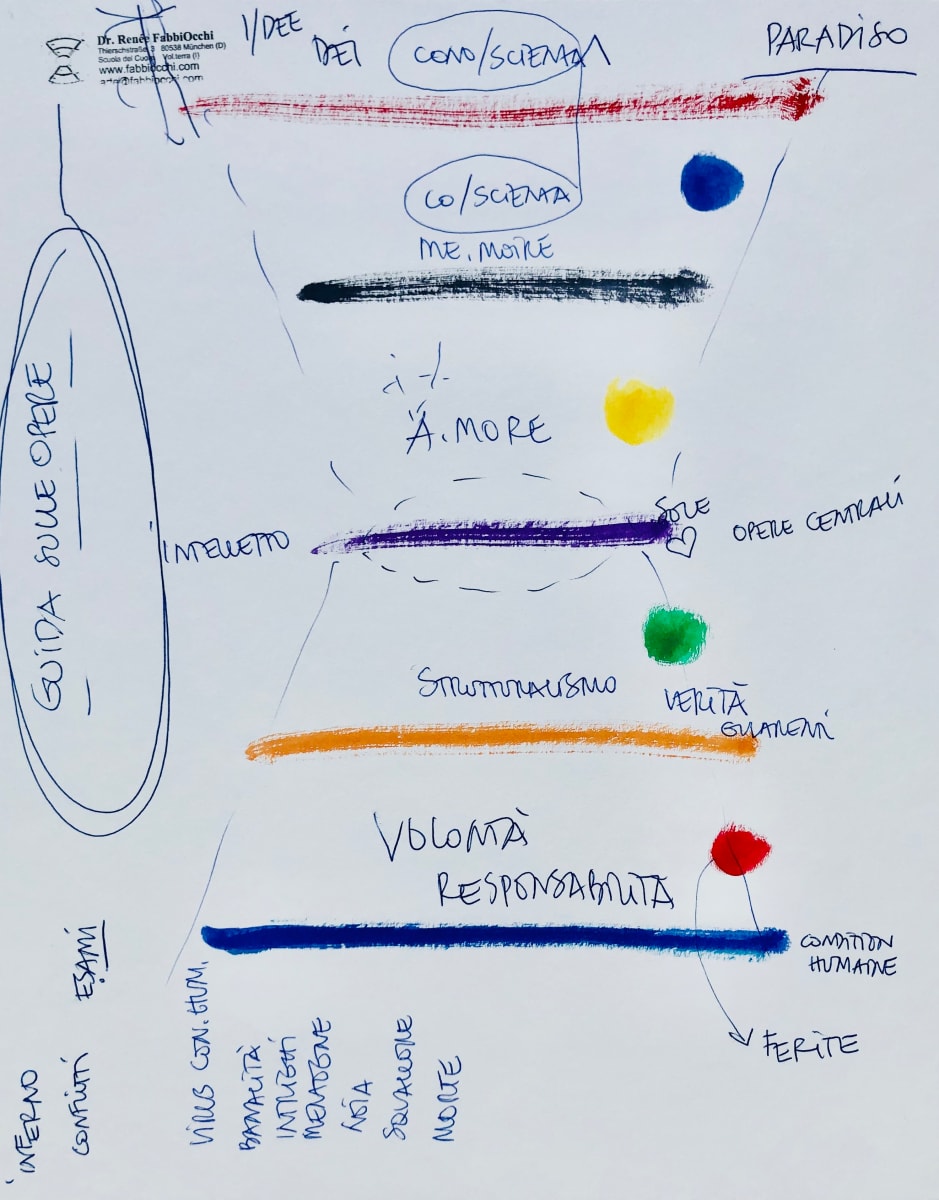 Dr. Renée FabbiOcchi
Thierschstraße 3 80538 München (D)
Scuola del Cuore Volterra (I)
www.fabbiocchi.com
arte@fabbiocchi.com
I/DEE
DEI
CONO/SCIENZA
PARADISO
CO/SCIENZA
ME.MOIRE
Ä.MORE
GUIDA SULLE OPERE
INTELLETTO
SOLE
OPERE CENTRALI
STRUTTURALISMO
VERITÀ
VOLONTÀ
RESPONSABILITÀ
CONDITION
HUMAINE
FERITE
INFERNO
CONFLITTI
ESAMI
VIRUS CON.HUM.
BANALITÀ
INTRECCI
MENZOGNE
SQUALLORE
MORTE